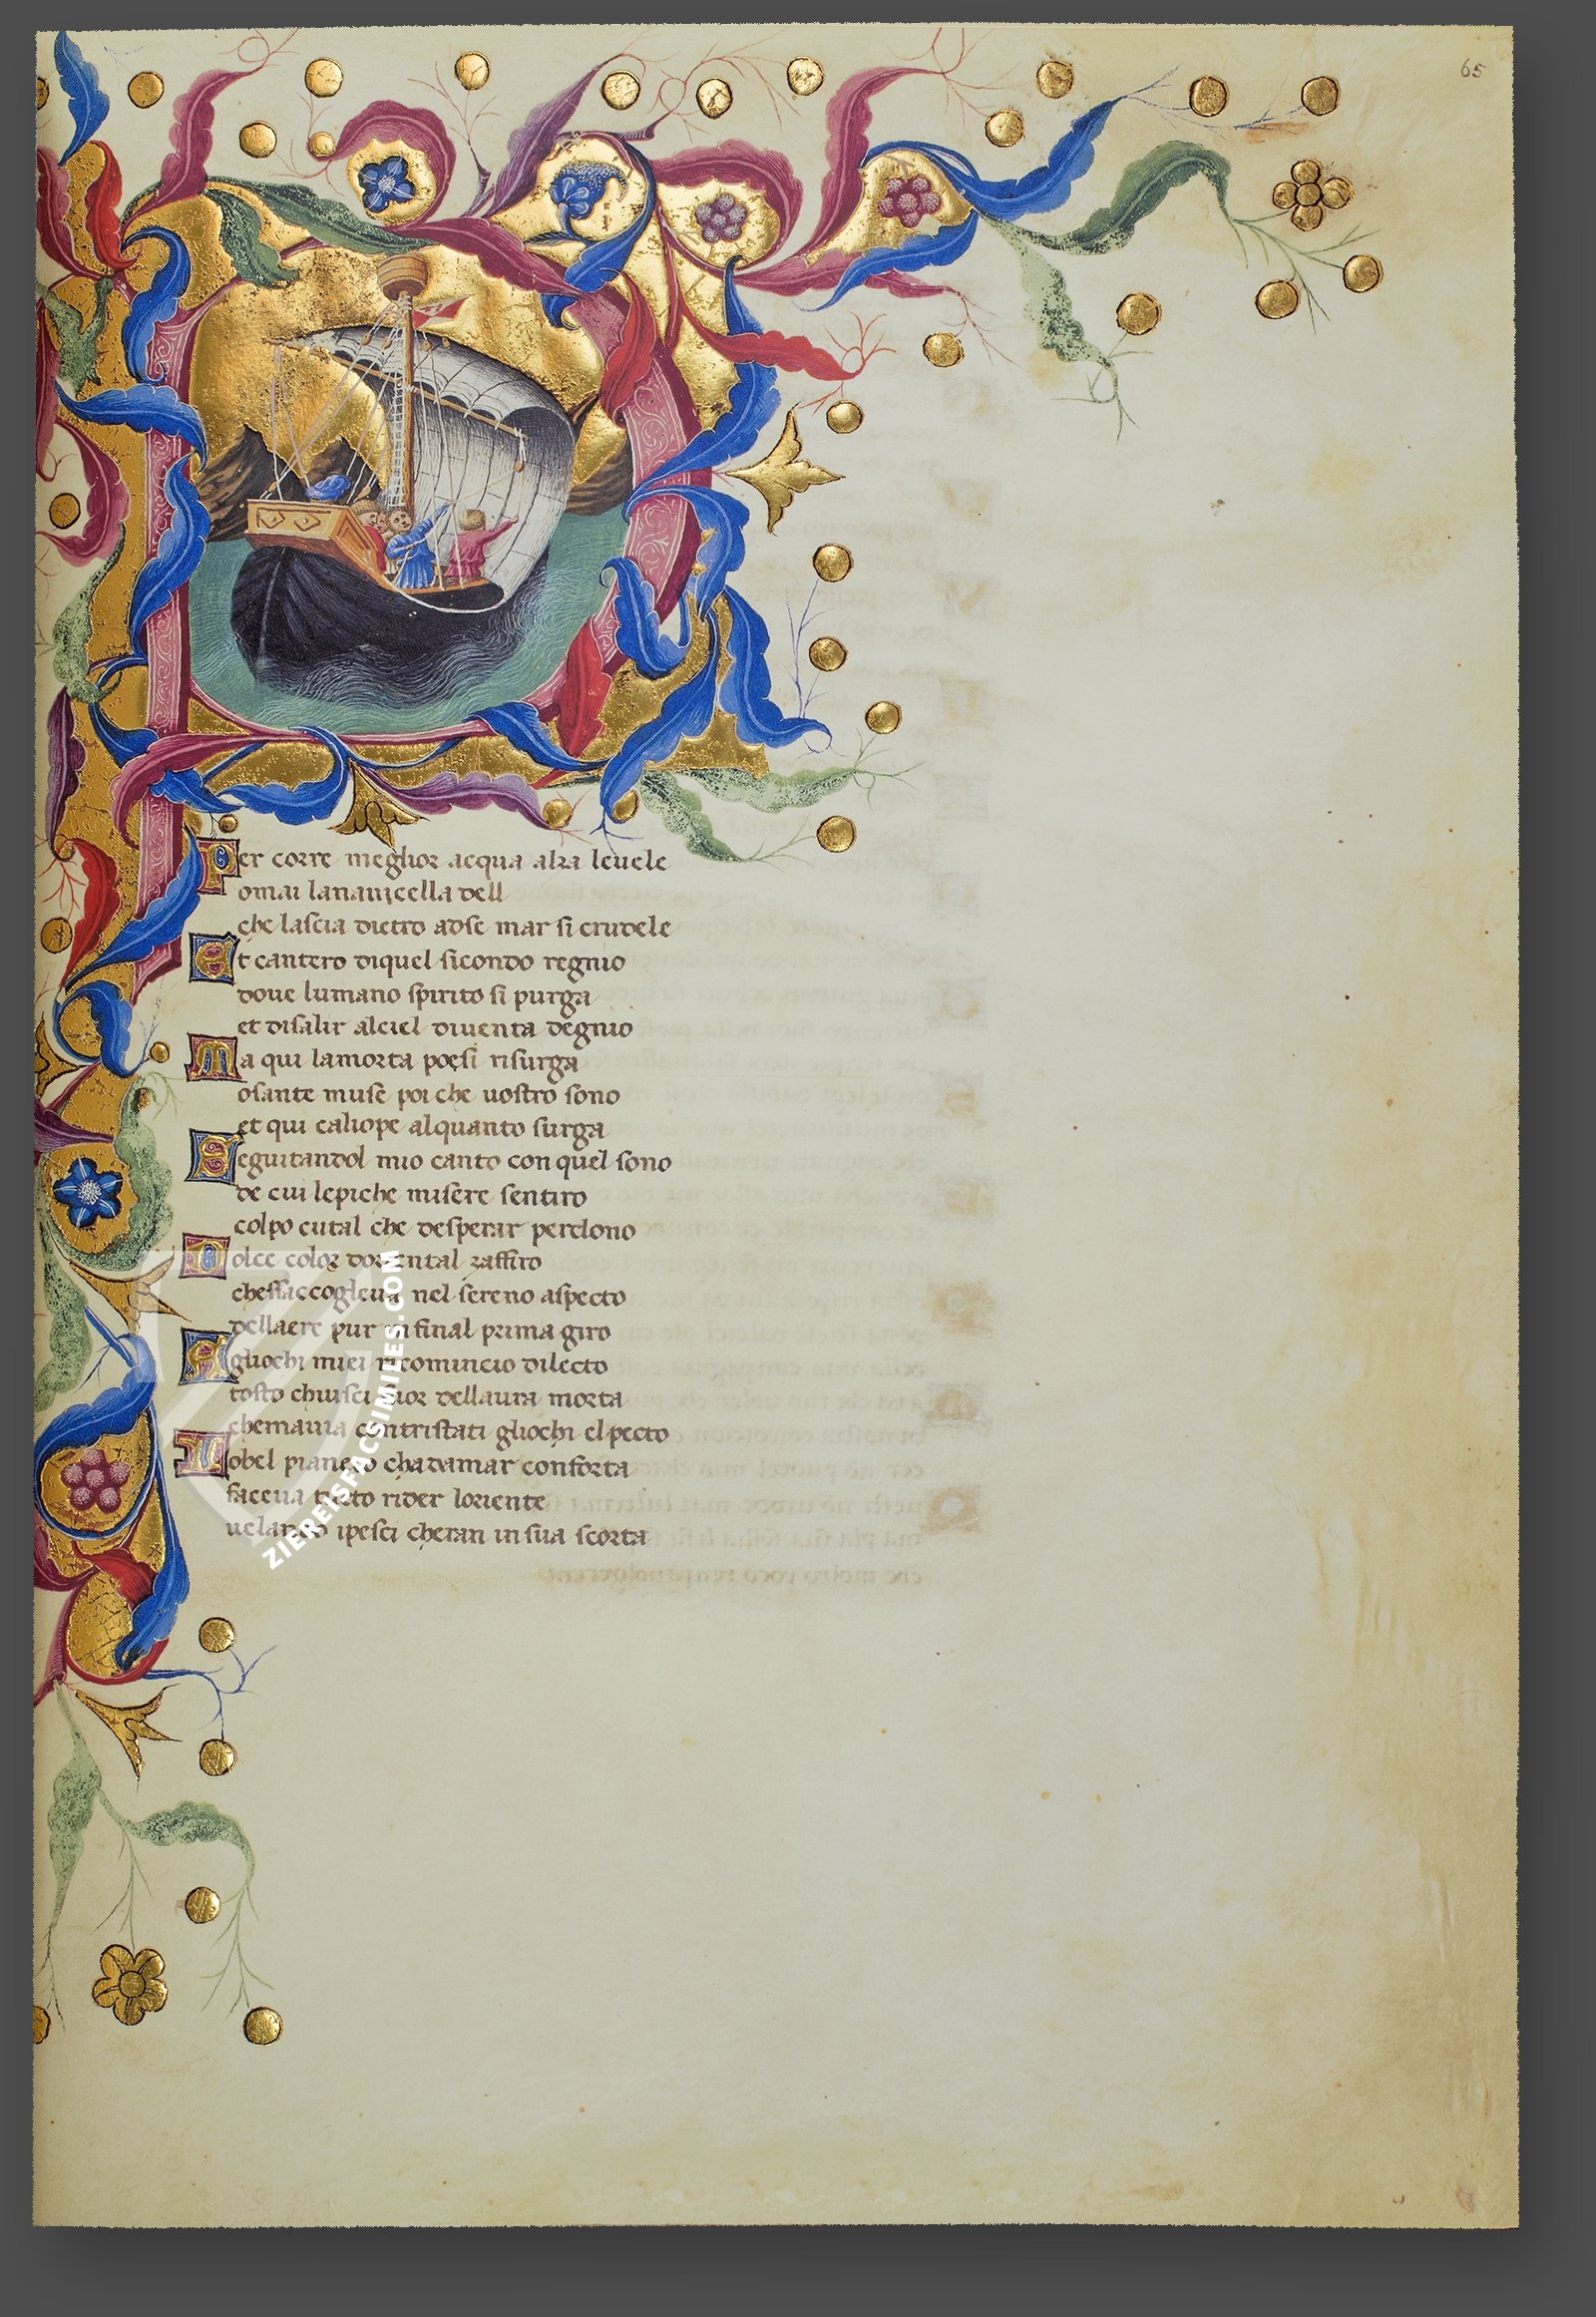 65
Per corre meglior acqua alza leuele
omai lanauicella dell
che lascia dietro adse mar si crudele
Et cantero diquel sicondo regnio
doue lumano spirito si purga
et disalir alciel diuenta degnio
Ma qui lamorta poesi risurga
osante muse poi che uostro sono
et qui caliope alquanto surga
Seguitandol mio canto con quel sono
de cui lepiche misere sentiro
colpo cutal che desperar perdono
Dolce color dorıental zaffiro
chessaccoglieua nel sereno aspecto
dellaere pur infinal prima giro
Agliochi miei ricomincio dilecto
tosto chuisci fuor dellaura morta
chemauia contristati gliochi elpecto
Lobel pianeto chadamar conforta
faceua tucto rider loriente
uelando ipesci cheran in sua scorta
ZIEREISFACSIMILES.COM